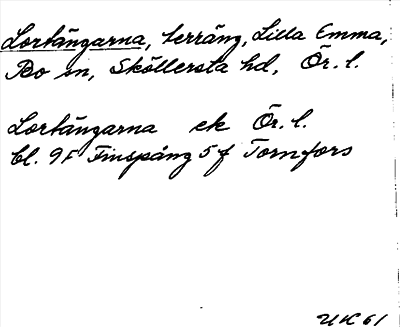 Lortängarna, terräng, Lilla Emma,
Bo sn, Sköllersta hd, Ör. l.
Lortängarna ek Ör. l.
bl. 9F Finspång 5 f Tornfors
UK 61